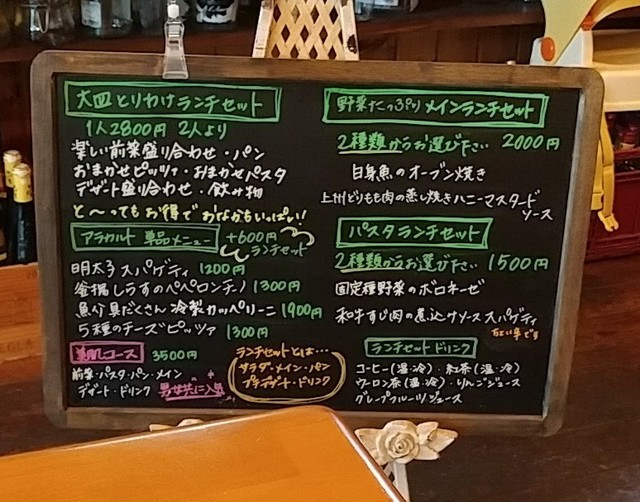 大皿とりわけランチセット
1人2800円 2人より
楽しい前菜盛り合わせ・パン
おまかせピッツァ・おまかせパスタ
デザート盛り合わせ・飲み物
と〜ってもお得でおなかもいっぱい!
アラカルト 単品メニュー
+600円
ランチセット
明太子スパゲティ 1200円
釜揚しらすのペペロンチーノ 1300円
魚介具だくさん 冷製カッペリーニ 1900円
5種のチーズピッツァ 1300円
美肌コース 3500円
前菜・パスタ・パン・メイン
デザート・ドリンク 男女共に人気
ランチセットとは…
サラダ・メイン・パン
プチデザート・ドリンク
野菜たっぷりメインランチセット
2種類からお選び下さい 2000円
白身魚のオーブン焼き
上州どりもも肉の蒸し焼きハニーマスタード
ソース
パスタランチセット
2種類からお選び下さい 1500円
固定種野菜のボロネーゼ
和牛すじ肉の煮込みソース スパゲティ
ランチセットドリンク
コーヒー(温・冷)・紅茶(温・冷)
ウーロン茶(温・冷)・りんごジュース
グレープフルーツジュース